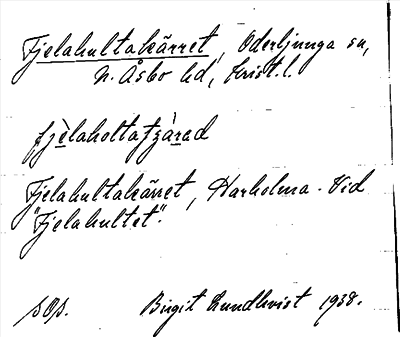 Fjelahultakärret, Oderljunga sn,
N. Åsbo hd, Krist. l.
fjèlaholtatʃàrad
Fjelahultakärret, Harholma. Vid
"Fjelahultet".
sOp. Birgit Lundkvist 1938.